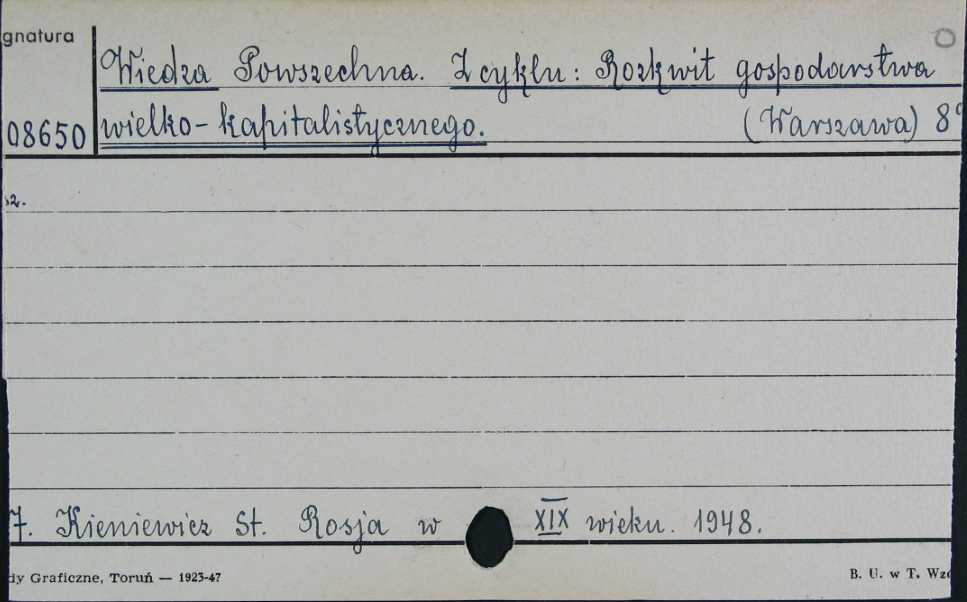 gnatura
Wiedza Powszechna. Z cyklu: Rozkwit gospodarstwa
08650 wielko-kapitalistycznego. (Warszawa) 8°
sz.
7. Kieniewicz St. Rosja w XIX wieku. 1948.
dy Graficzne, Toruń — 1923-47 B. U. w T. Wzó